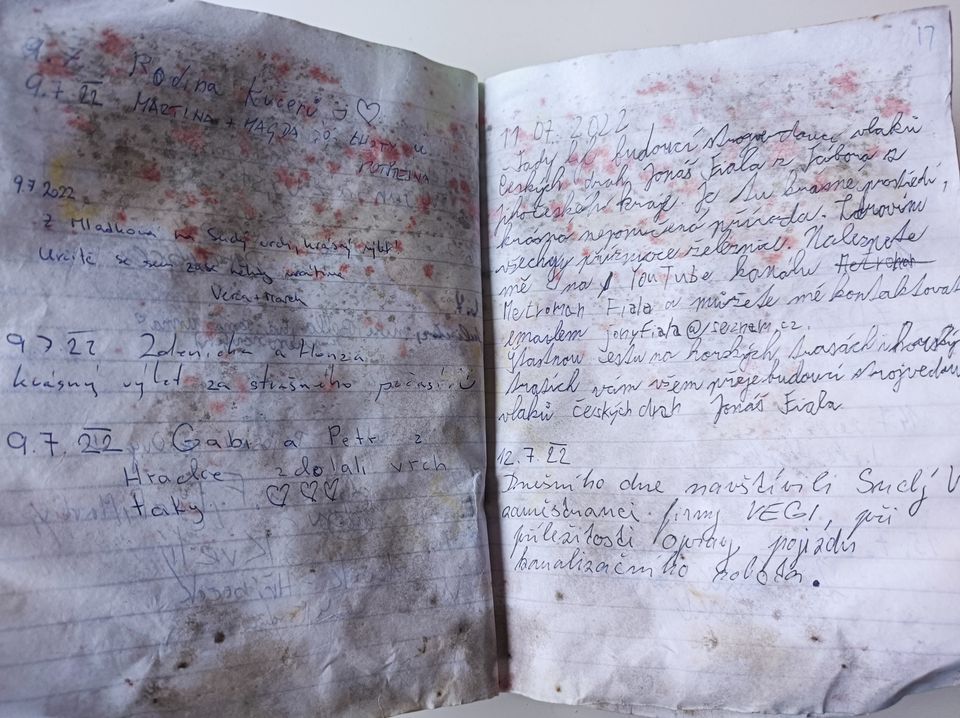 9.7.
Rodina Kučerů :-) ♡
9.7.22 MARTINA + MAGDA
9.7.2022
Z Mladkova na Suchý vrch, krásný výlet!
Určitě se sem zase někdy vrátíme
Verča + Marek
9.7.22 Zdenička a Honza
krásný výlet za strašného počasí
9.7.22 Gabi a Petr z
Hradce zdolali vrch
taky. ♡♡♡
17
11.07.2022
Tady byl budoucí strojvedoucí vlaků
Českých drah Jonáš Fiala z Tábora z
jihočeského kraje. Je tu krásné prostředí,
krásná neponičená příroda. Zdravím
všechny příznivce železnice. Naleznete
mě i na YouTube kanálu Metroman
Metroman Fiala a můžete mě kontaktovat
emailem jonyfiala@seznam.cz.
Šťastnou cestu na horských trasách i horských
tratích vám všem přeje budoucí strojvedoucí
vlaků českých drah Jonáš Fiala
12.7.22
Dnešního dne navštívili Suchý V
zaměstnanci firmy VEGI, při
příležitosti opravy pojezdu
kanalizačního robota.